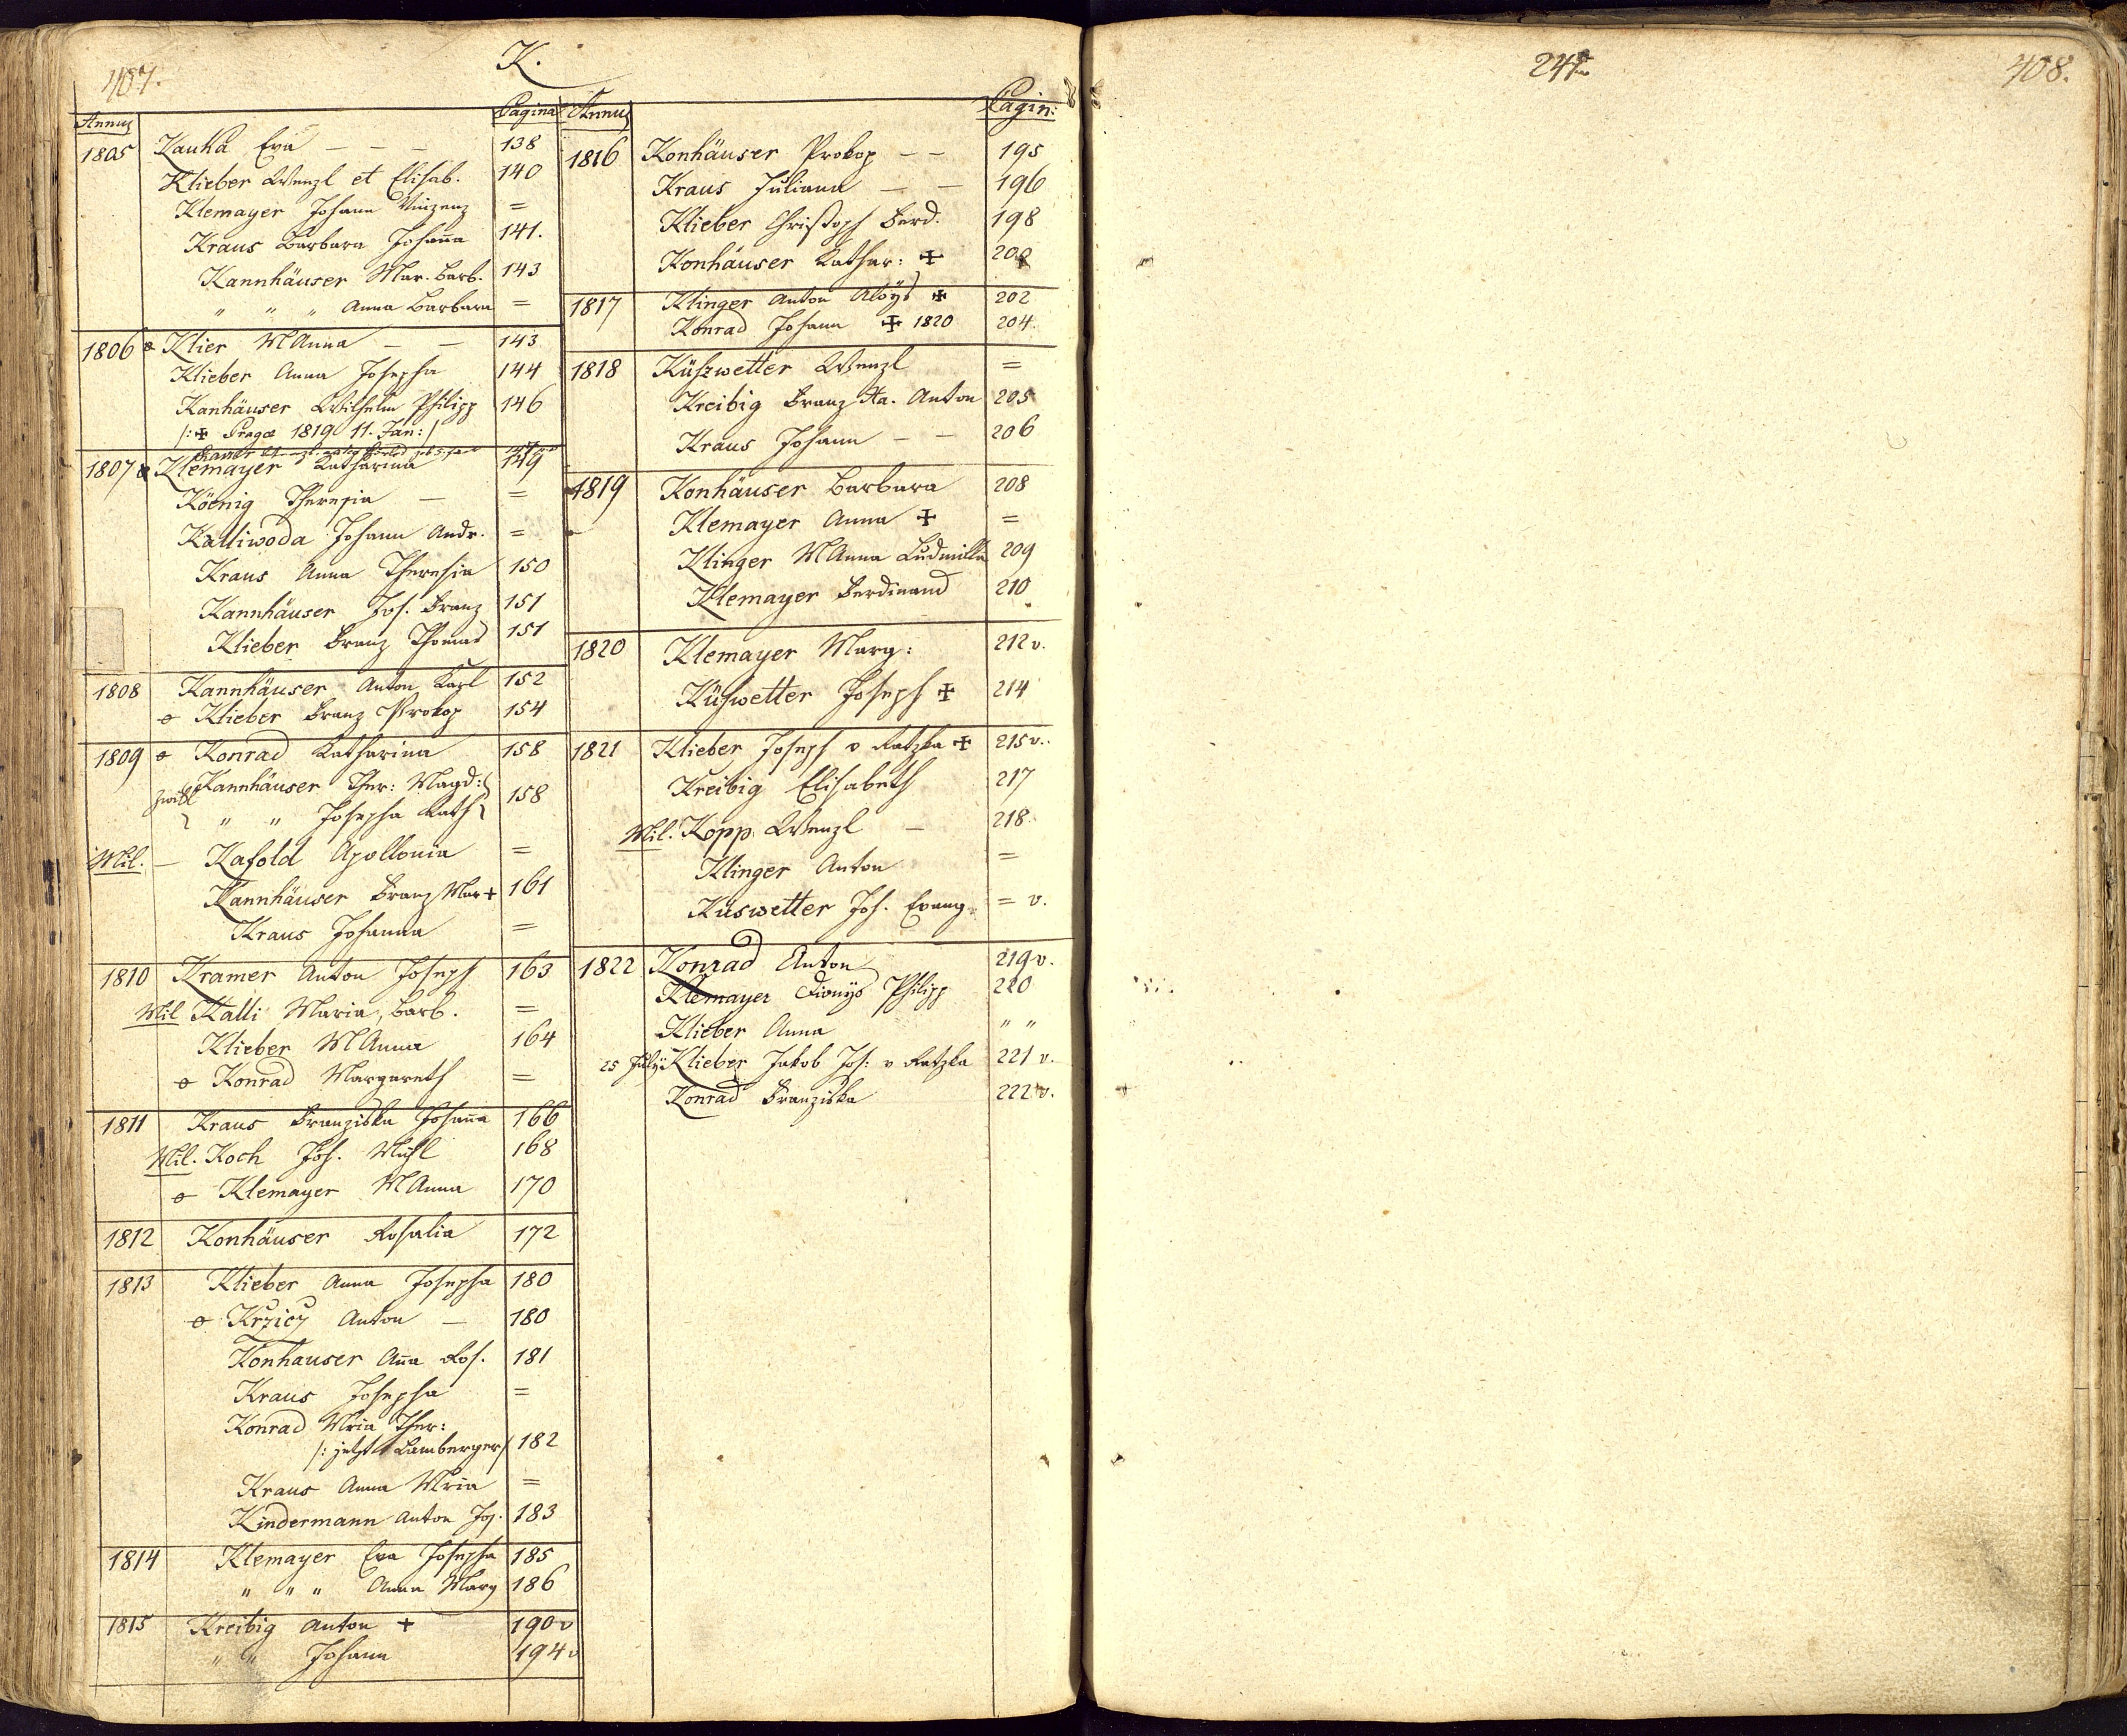 407.
K.
Annus Pagina
1805 Kauka Eva — — — 138
Klieber Wenzl et Elisab. 140
Klemayer Johann Vinzenz =
Kraus Barbara Johan̄a 141.
Kannhäuser Mar. Barb. 143
" " " Anna Barbara =
1806 o Klier M Anna — — 143
Klieber Anna Josepha 144
Kanhäuser Wilhelm Philipp 146
/: ✠ Pragæ 1819 11. Jan: /
1807 Klemayer Katharina 149
Köenig Theresia — =
Kalliwoda Johann Andr. =
Kraus Anna Theresia 150
Kannhäuser Jos. Franz 151
Klieber Franz Thomas 151
1808 Kannhäuser Anton Karl 152
o Klieber Franz Prokop 154
1809 o Konrad Katharina 158
Kannhäuser Ther: Magd:
" " Josepha Kath 158
Mil. — Kafold Apollonia =
Kannhäuser Franz Mar + 161
Kraus Johanna =
1810 Kramer Anton Joseph 163
Mil Kalli Maria, Barb. =
Klieber M Anna 164
o Konrad Margareth =
1811 Kraus Franziska Johan̄a 166
Mil. Koch Joh. Michl 168
o Klemayer M Anna 170
1812 Konhäuser Rosalia 172
1813 Klieber Anna Josepha 180
o Krziez Anton — 180
Konhauser An̄a Ros. 181
Kraus Josepha =
Konrad Mria Ther:
/: jetzt Lamberger / 182
Kraus Anna Mria =
Kindermann Anton Jos. 183
1814 Klemayer Eva Josepha 185
" " " Anna Marg 186
1815 Kreibig Anton + 190 v
" " Johann 194 v
Annus Pagin:
1816 Konhäuser Prokop — — 195
Kraus Juliana — — 196
Klieber Christoph Ferd. 198
Konhäuser Kathar: ✠ 200
1817 Klinger Anton Aloÿs ✠ 202
Konrad Johann ✠ 1820 204.
1818 Küszwetter Wenzl =
Kreibig Franz Xa. Anton 205
Kraus Johann — — 206
1819 Konhäuser Barbara 208
Klemayer Anna ✠ =
Klinger M Anna Ludmilla 209
Klemayer Ferdinand 210
1820 Klemayer Marg: 212 v.
Küswetter Joseph ✠ 214
1821 Klieber Joseph v Ratzka ✠ 215 v.
Kreibig Elisabeth 217
Mil. Kopp Wenzl — 218
Klinger Anton =
Küswetter Joh. Evang. = v.
1822 Konrad Anton 219 v.
Klemayer Dionÿs Philipp 220
Klieber Anna " "
25 Julÿ Klieber Jakob Jos: v Ratzka 221 v.
Konrad Franziska 222 v.
408.